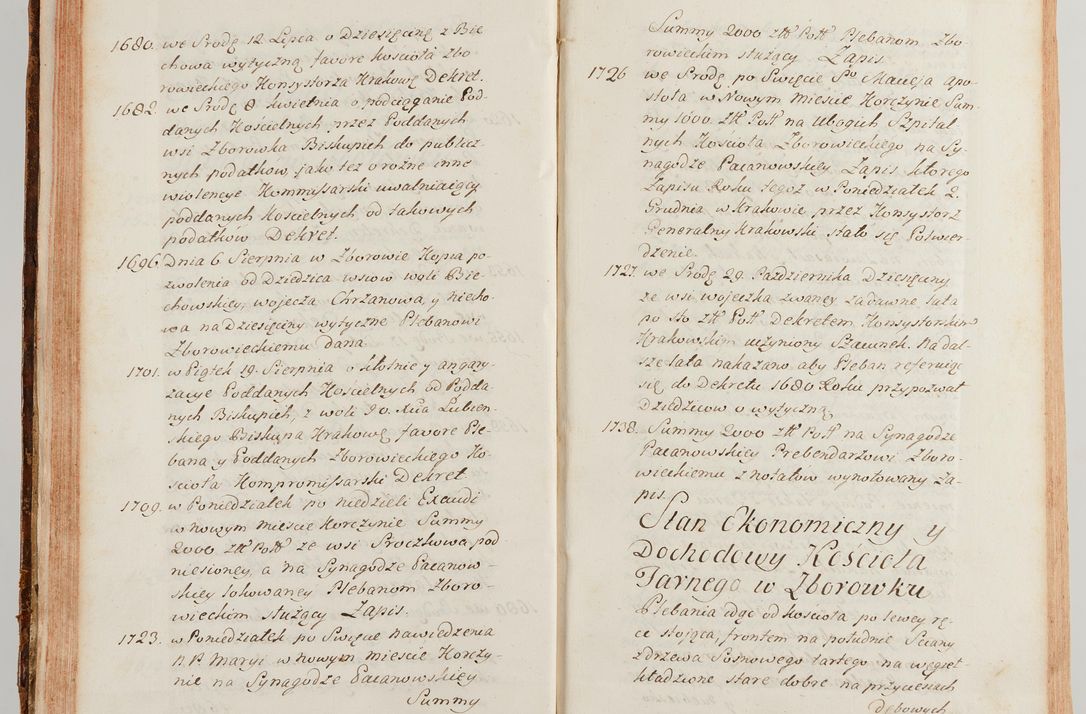 1680. we Srodę 12 Lipca o Dziesięcinę z Bie
chowa wytyczną favore kościoła Zbo
rowieckiego Konsystorza Krakowẽ Dekret.
1682. we Srodę 8 kwietnia o podciąganie Pod-
danych Kościelnych przez Poddanych
wsi Zborowka Biskupich do publicz
nych podatkow, jako też o rożne inne
wiolencye Kommissarski uwalniaiący
poddanych kościelnych od takowych
podatkow Dekret.
1696. Dnia 6 Sierpnia w Zborowie Kopia po
zwolenia od Dziedzica wsiow woli Bie
chowskiey, wojecza Chrzanowa, y niecho-
wa na Dziesięciny wytyczne Plebanowi
Zborowieckiemu dana.
1701. w Piątek 19. Sierpnia o kłotnie y angary-
zacye Poddanych Kościelnych od Podda-
nych Biskupich, z woli Łubień-
skiego Biskupa Krakowẽ favore Ple
bana y Poddanych Zborowieckiego Ko-
ścioła Kompromissarski Dekret
1709. w Poniedziałek po niedzieli Exaudi
w nowym mieście Korczynie Summy
2000 złł Poll ze wsi Proczkowa pod
niesioney, a na Synagodze Pacanow-
skiey lokowaney Plebanom Zboro-
wieckim służący Zapis.
1723. w Poniedziałek po Swięcie nawiedzenia
N. P. Maryi w nowym mieście Korczy-
nie na Synagodze Pacanowskiey
Summy
Summy 2000 złł Poll Plebanom Zbo-
rowieckim służący Zapis.
1726 we Srodę po Swięcie Sgo Macieja apo
stoła w Nowym Mieście Korczynie Sum-
my 1000 złł Poll na Ubogich Szpital
nych Kościoła Zborowieckiego na Sy-
nagodze Pacanowskiey Zapis ktorego
Zapisu Roku tegoż w Poniedziałek 2.
Grudnia w Krakowie przez Konsystorz
Generalny Krakowski stało się Potwier-
dzenie.
1727. we Srodę 29. Października Dziesięciny
ze wsi wojeczka zwaney za dawne lata
po sto złł Poll Dekretem Konsystorskim
Krakowskim uczyniony Szacunek. Na dal-
sze lata nakazano aby Pleban referuiąc
się do Dekretu 1680 Roku przypozwał
Dziedzicow o wytyczną
1738. Summy 2000 złł Poll na Synagodze
Pacanowskiey Prebendarzowi Zboro-
wieckiemu z notatow wynotowany Za-
pis.
Stan Ekonomiczny y
Dochodowy Kościoła
Farnego w Zborowku
Plebania idąc od kościoła po lewey rę-
ce stojąca, frontem na południe Sciany
z drzewa Sosnowego tartego na węgieł
kładzione stare dobre na przyciesiach
Dębowych